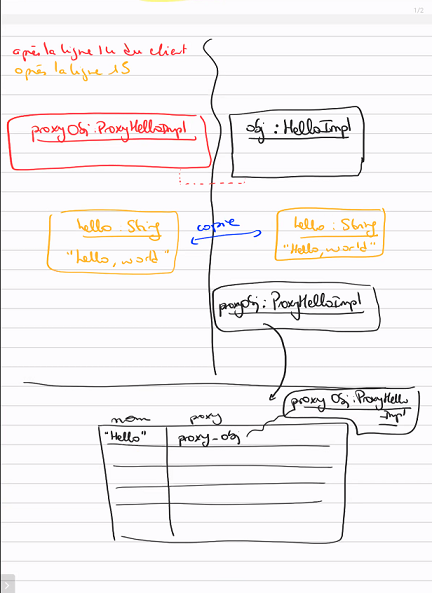 1/2
après la ligne 14 du client
après la ligne 15
proxyObj : ProxyHelloImpl
obj : HelloImpl
hello : String
"hello, world"
copie
hello : String
"Hello, world"
proxyObj : ProxyHelloImpl
proxyObj : ProxyHello
Impl
nom
proxy
"Hello"
proxy_obj